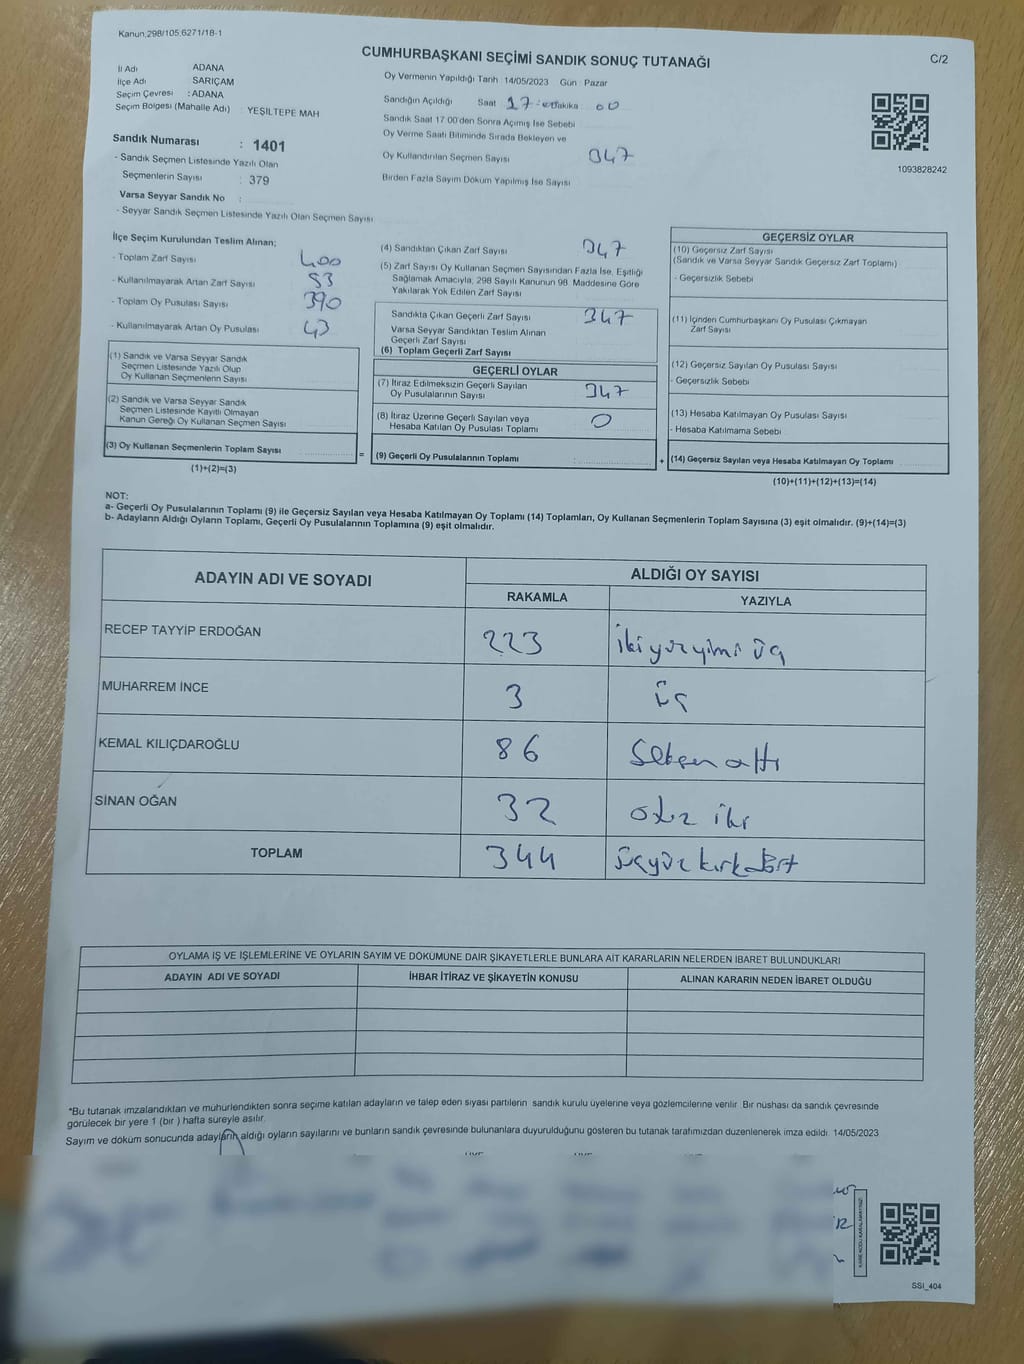 Kanun,298/105,6271/18-1
CUMHURBAŞKANI SEÇİMİ SANDIK SONUÇ TUTANAĞI
C/2
İl Adı ADANA
İlçe Adı SARIÇAM
Seçim Çevresi : ADANA
Seçim Bölgesi (Mahalle Adı) : YEŞİLTEPE MAH
Oy Vermenin Yapıldığı Tarih 14/05/2023 Gün Pazar
Sandığın Açıldığı Saat 17 Dakika 00
Sandık Saat 17 00'den Sonra Açımış İse Sebebi
Oy Verme Saati Bitiminde Sırada Bekleyen ve
Oy Kullandırılan Seçmen Sayısı 347
Birden Fazla Sayım Döküm Yapılmış İse Sayısı
1093828242
Sandık Numarası : 1401
- Sandık Seçmen Listesinde Yazılı Olan
Seçmenlerin Sayısı : 379
Varsa Seyyar Sandık No :
- Seyyar Sandık Seçmen Listesinde Yazılı Olan Seçmen Sayısı
İlçe Seçim Kurulundan Teslim Alınan;
- Toplam Zarf Sayısı 400
- Kullanılmayarak Artan Zarf Sayısı 53
- Toplam Oy Pusulası Sayısı 390
- Kullanılmayarak Artan Oy Pusulası 43
(1) Sandık ve Varsa Seyyar Sandık
Seçmen Listesinde Yazılı Olup
Oy Kullanan Seçmenlerin Sayısı
(2) Sandık ve Varsa Seyyar Sandık
Seçmen Listesinde Kayıtlı Olmayan
Kanun Gereği Oy Kullanan Seçmen Sayısı
(3) Oy Kullanan Seçmenlerin Toplam Sayısı =
(1)+(2)=(3)
(4) Sandıktan Çıkan Zarf Sayısı 347
(5) Zarf Sayısı Oy Kullanan Seçmen Sayısından Fazla İse, Eşitliği
Sağlamak Amacıyla, 298 Sayılı Kanunun 98. Maddesine Göre
Yakılarak Yok Edilen Zarf Sayısı
Sandıkta Çıkan Geçerli Zarf Sayısı 347
Varsa Seyyar Sandıktan Teslim Alınan
Geçerli Zarf Sayısı
(6) Toplam Geçerli Zarf Sayısı
GEÇERLİ OYLAR
(7) İtiraz Edilmeksizin Geçerli Sayılan
Oy Pusulalarının Sayısı 347
(8) İtiraz Üzerine Geçerli Sayılan veya
Hesaba Katılan Oy Pusulası Toplamı 0
(9) Geçerli Oy Pusulalarının Toplamı : +
GEÇERSİZ OYLAR
(10) Geçersiz Zarf Sayısı
(Sandık ve Varsa Seyyar Sandık Geçersiz Zarf Toplamı)
- Geçersizlik Sebebi
(11) İçinden Cumhurbaşkanı Oy Pusulası Çıkmayan
Zarf Sayısı
(12) Geçersiz Sayılan Oy Pusulası Sayısı
- Geçersizlik Sebebi
(13) Hesaba Katılmayan Oy Pusulası Sayısı
- Hesaba Katılmama Sebebi
(14) Geçersiz Sayılan veya Hesaba Katılmayan Oy Toplamı
(10)+(11)+(12)+(13)=(14)
NOT:
a- Geçerli Oy Pusulalarının Toplamı (9) ile Geçersiz Sayılan veya Hesaba Katılmayan Oy Toplamı (14) Toplamları, Oy Kullanan Seçmenlerin Toplam Sayısına (3) eşit olmalıdır. (9)+(14)=(3)
b- Adayların Aldığı Oyların Toplamı, Geçerli Oy Pusulalarının Toplamına (9) eşit olmalıdır.
ADAYIN ADI VE SOYADI ALDIĞI OY SAYISI
RAKAMLA YAZIYLA
RECEP TAYYİP ERDOĞAN 223 ikiyüzyirmi üç
MUHARREM İNCE 3 üç
KEMAL KILIÇDAROĞLU 86 Seksen altı
SİNAN OĞAN 32 otuz iki
TOPLAM 344 üçyüz kırkdört
OYLAMA İŞ VE İŞLEMLERİNE VE OYLARIN SAYIM VE DÖKÜMÜNE DAİR ŞİKAYETLERLE BUNLARA AİT KARARLARIN NELERDEN İBARET BULUNDUKLARI
ADAYIN ADI VE SOYADI İHBAR İTİRAZ VE ŞİKAYETİN KONUSU ALINAN KARARIN NEDEN İBARET OLDUĞU
*Bu tutanak imzalandıktan ve mühürlendikten sonra seçime katılan adayların ve talep eden siyasi partilerin sandık kurulu üyelerine veya gözlemcilerine verilir. Bir nüshası da sandık çevresinde
görülecek bir yere 1 (bir ) hafta süreyle asılır.
Sayım ve döküm sonucunda adayların aldığı oyların sayılarını ve bunların sandık çevresinde bulunanlara duyurulduğunu gösteren bu tutanak tarafımızdan düzenlenerek imza edildi. 14/05/2023
KARE KODU KARALAMAYINIZ!
SSI_404